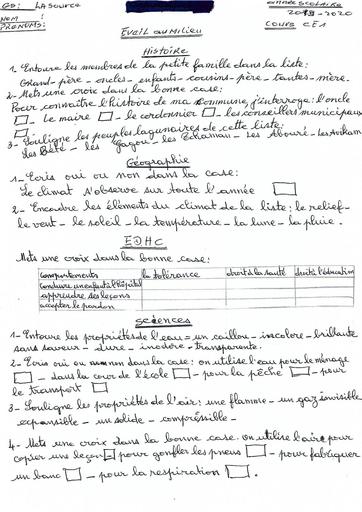 GS: LA SOURCE
ANNÉE SCOLAIRE
2019-2020
NOM :
PRENOMS:
COURS CE1
Éveil au milieu
Histoire
1- Entoure les membres de la petite famille dans la liste:
Grand-père - oncles - enfants - cousins - père - tantes - mère.
2- Mets une croix dans la bonne case:
Pour connaître l'histoire de ma commune, j'interroge: l'oncle
- le maire - le cordonnier - les conseillers municipaux
3- Souligne les peuples lagunaires de cette liste:
Les Bété - les Gagou - les Ebrié - Les Abouré - les
Géographie
1- Écris oui ou non dans la case:
Le climat s'observe sur toute l'année
2- Encadre les éléments du climat de la liste: le relief -
le vent - le soleil - la température - la lune - la pluie.
EDHC
Mets une croix dans la bonne case:
Comportements la tolérance droit à la santé droit à l'éducation
Conduire un enfant à l'hôpital
apprendre ses leçons
accepter le pardon
sciences
1- Entoure les propriétés de l'eau = un caillou - incolore - brillante
sans saveur - dure - inodore - transparente.
2- Écris oui ou non dans la case: on utilise l'eau pour le ménage
- dans la cour de l'école - pour la pêche - pour
le transport
3- Souligne les propriétés de l'air: une flamme - un gaz invisible
expansible - un solide - compressible -
4- Mets une croix dans la bonne case. on utilise l'air pour
copier une leçon - pour gonfler les pneus - pour fabriquer
un banc - pour la respiration .